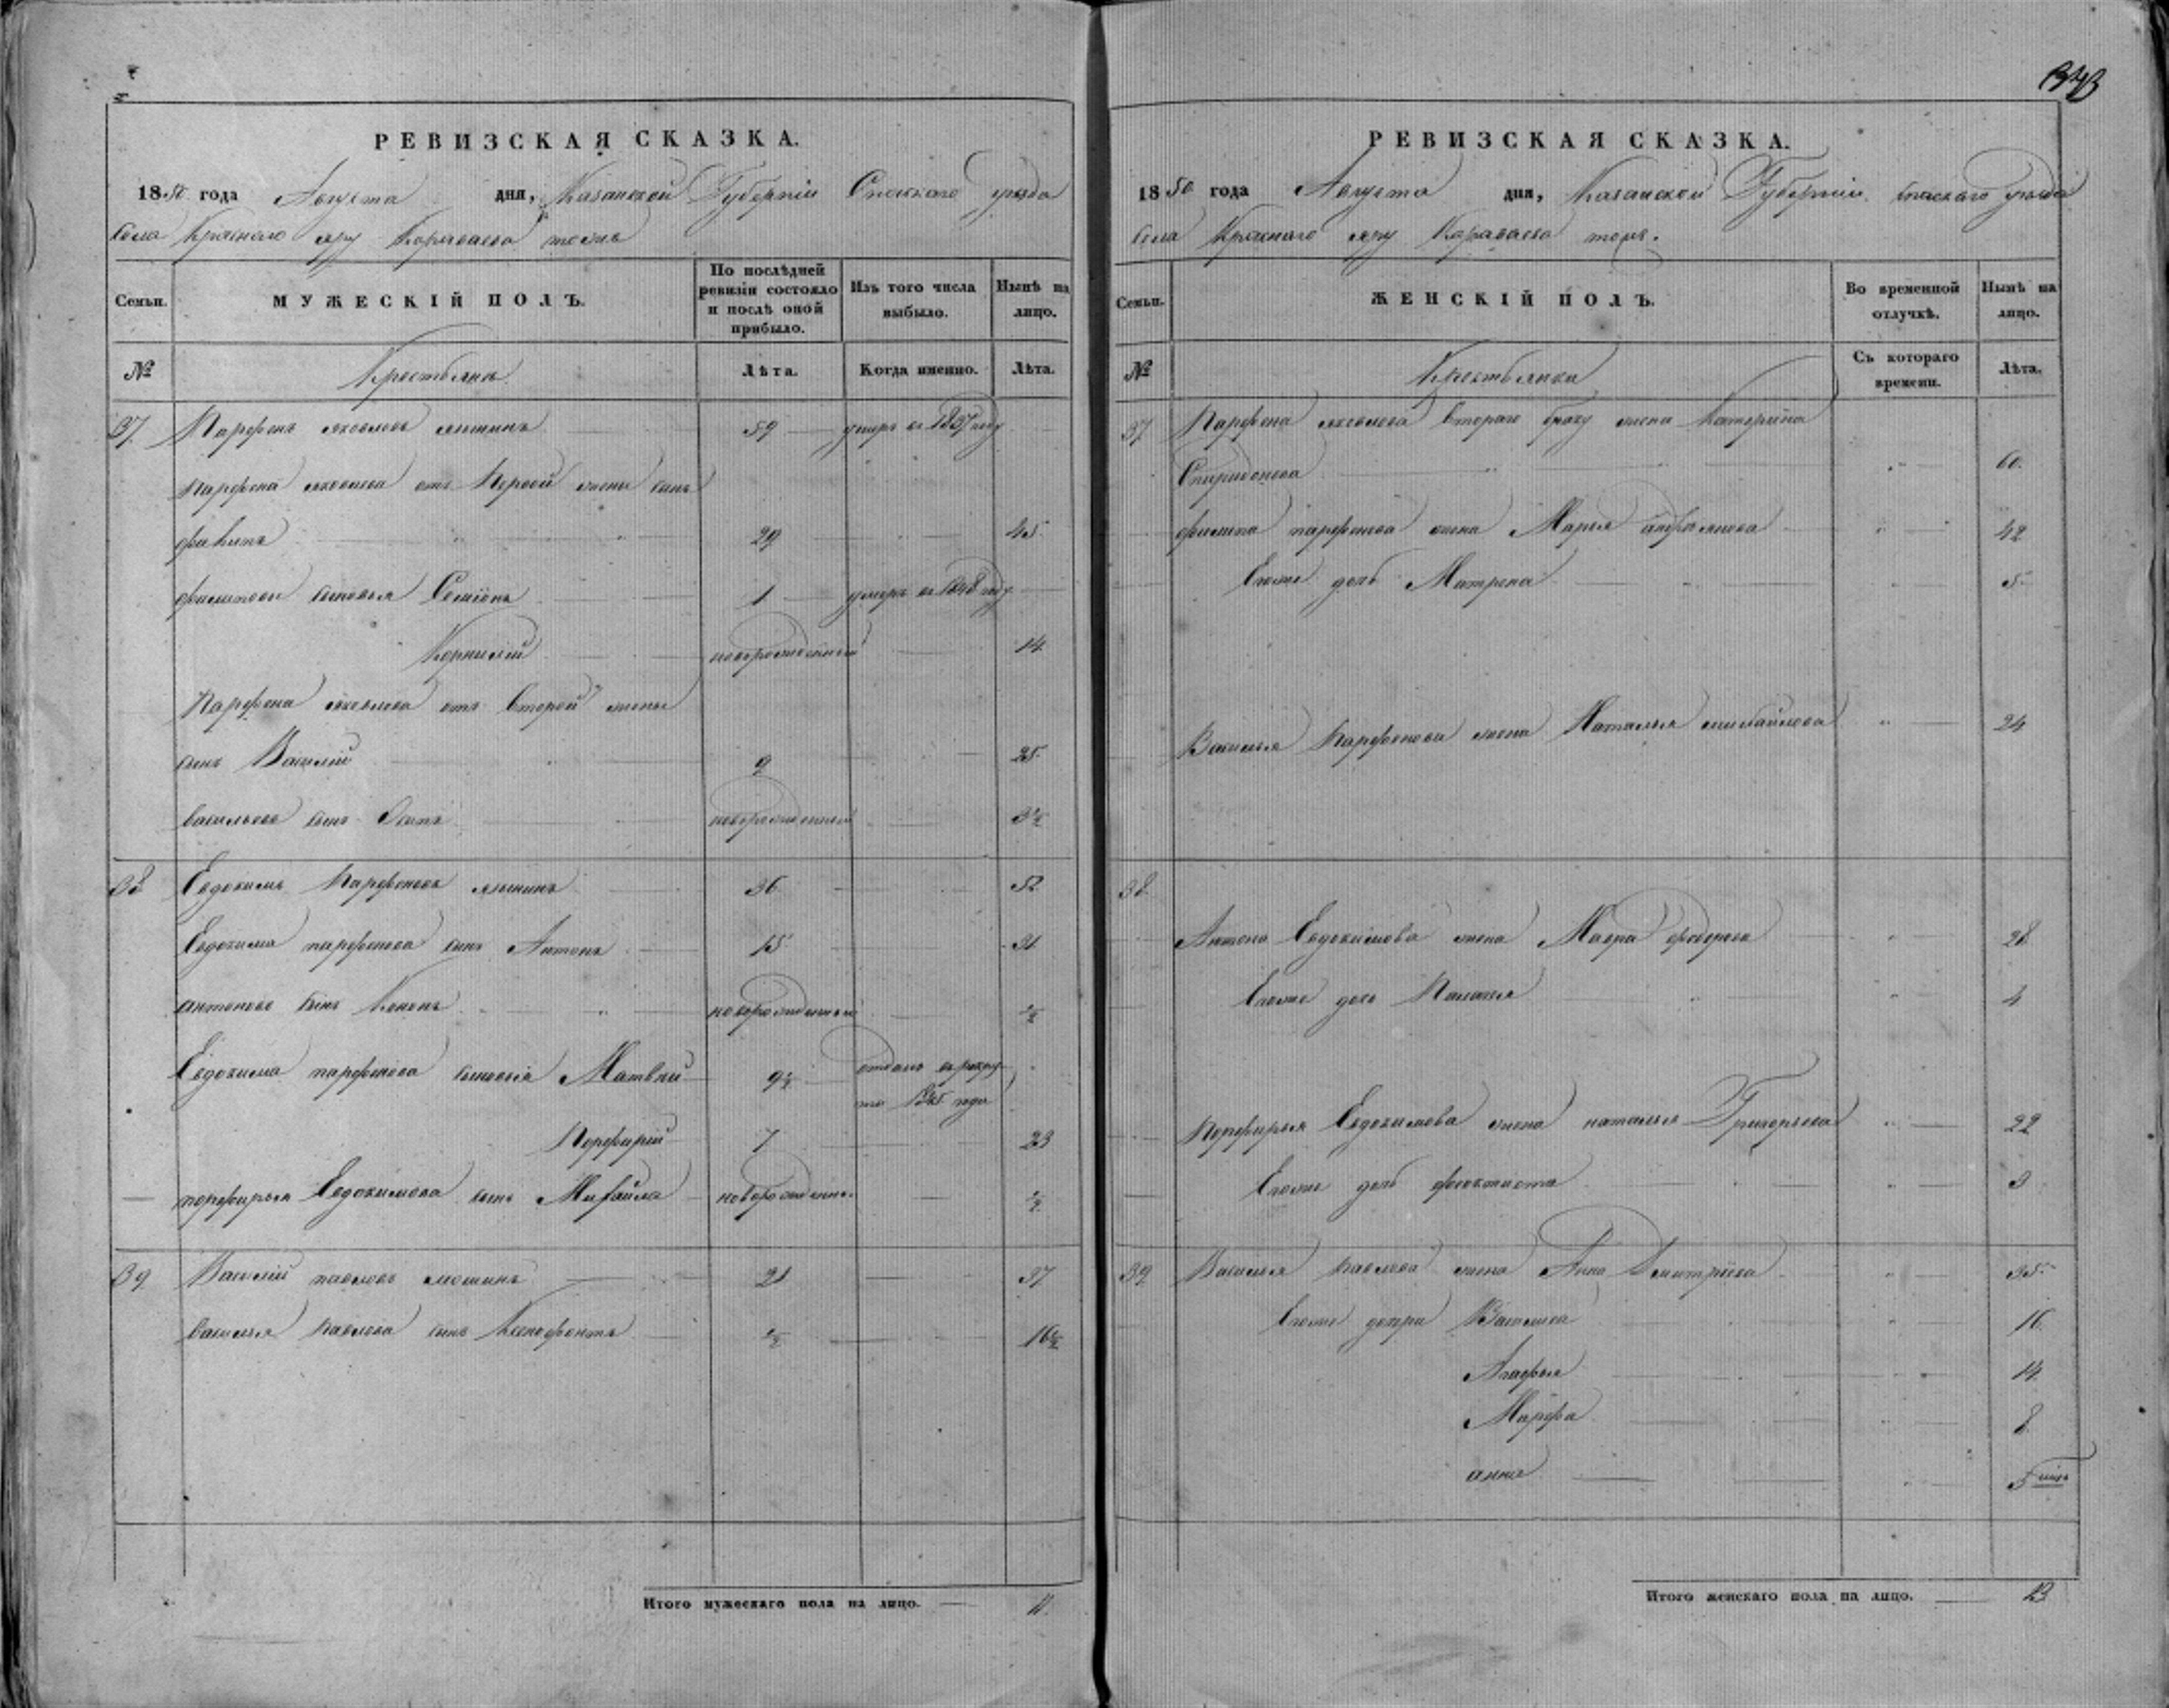 343
РЕВИЗСКАЯ СКАЗКА.
1850 года Августа дня, Казанской Губерніи Спаского уезда
села Красного яру Караваева тожъ
Семьи. МУЖЕСКІЙ ПОЛЪ. По послѣдней ревизіи состояло и послѣ оной прибыло. Изъ того числа выбыло. Нынѣ на лицо.
№ Крестьяне Лѣта. Когда именно. Лѣта.
37 Парфенъ яковлевъ 59 умеръ в 1837 году
Парфена яковлева отъ Первой жены сынъ
29 45
сыновья Семіонъ 1 умеръ в 1848 году
Корнилій новорожденный 14
Парфена яковлева отъ Второй жены
сынъ Василій 9 25
васильевъ сынъ Осипъ новорожденный
38 Евдокимъ Парфеновъ 36 52
Евдокима парфенова сынъ Антонъ 15 31
антоново сынъ Кононъ новорожденный ½
Евдокима парфенова сыновья Матвей 9½ отданъ в рекру-
ты 1845 года
Порфирій 7 23
порфирья Евдокимова сынъ Михайла новорожденны ½
39 Василій павловъ 21 37
василья павлова сынъ Ксенофонтъ ½ 16½
Итого мужескаго пола на лицо. 11.
РЕВИЗСКАЯ СКАЗКА.
1850 года Августа дня, Казанской Губерніи спаскаго уезда
села Краснаго яру Караваева тожъ.
Семьи. ЖЕНСКІЙ ПОЛЪ. Во временной отлучкѣ. Нынѣ на лицо.
№ Крестьянки Съ котораго времени. Лѣта.
37 Парфена яковлева втораго браку жена Катерина
Спиридонова 60.
парфенова жена Марья 42
Ево же дочь Матрена 5
Василья Парфенова жена Наталья михайлова 24
38.
Антона Евдокимова жена Мавра федорова 28
Ево же дочь Палагея 4
Порфирья Евдокимова жена наталья Григорьева 22
Ево же дочь феоктиста 3
39 Василья павлова жена Анна Дмитріева 35
Ево же дочери Василиса 16
Агафья 14
Марфа 8
анна 5
Итого женскаго пола на лицо. 13